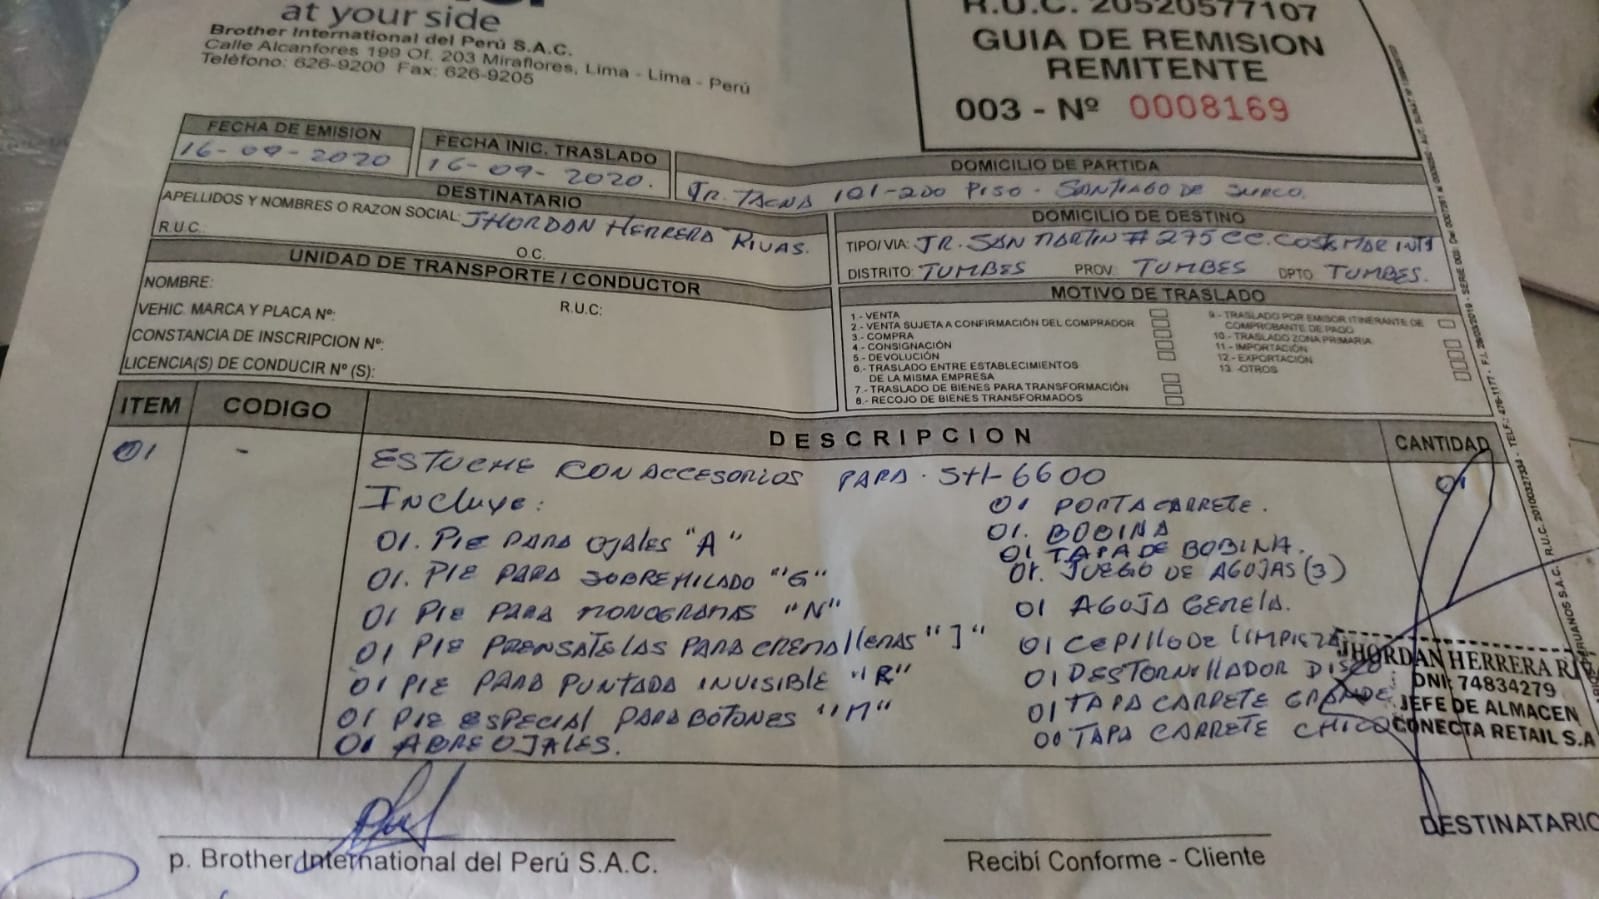 at your side
Brother International del Perú S.A.C.
Calle Alcanfores 199 Of. 203 Miraflores, Lima - Lima - Perú
Teléfono: 626-9200 Fax: 626-9205
R.U.C. 20520577107
GUIA DE REMISION
REMITENTE
003 - Nº 0008169
FECHA DE EMISION
16-09-2020
FECHA INIC. TRASLADO
16-09-2020.
DOMICILIO DE PARTIDA
JR. TACNA 101-200 PISO - SANTIAGO DE SURCO.
DESTINATARIO
APELLIDOS Y NOMBRES O RAZON SOCIAL: JHORDAN HERRERA RIVAS.
R.U.C.
O.C.
DOMICILIO DE DESTINO
TIPO/VIA: JR. SAN MARTIN # 275 CC. COSTA MAR INT1
DISTRITO: TUMBES PROV: TUMBES DPTO TUMBES.
UNIDAD DE TRANSPORTE / CONDUCTOR
NOMBRE:
VEHIC. MARCA Y PLACA Nº:
R.U.C:
CONSTANCIA DE INSCRIPCION Nº:
LICENCIA(S) DE CONDUCIR Nº (S):
MOTIVO DE TRASLADO
1.- VENTA
2.- VENTA SUJETA A CONFIRMACIÓN DEL COMPRADOR
3.- COMPRA
4.- CONSIGNACIÓN
5.- DEVOLUCIÓN
6.- TRASLADO ENTRE ESTABLECIMIENTOS
DE LA MISMA EMPRESA
7.- TRASLADO DE BIENES PARA TRANSFORMACIÓN
8.- RECOJO DE BIENES TRANSFORMADOS
9.- TRASLADO POR EMISOR ITINERANTE DE
COMPROBANTE DE PAGO
10.- TRASLADO ZONA PRIMARIA
11.- IMPORTACIÓN
12.- EXPORTACIÓN
13.- OTROS
ITEM
CODIGO
DESCRIPCION
CANTIDAD
01
-
ESTUCHE CON ACCESORIOS PARA . SH-6600
01
Incluye:
01. PIE PARA OJALES "A"
01. PIE PARA SOBREHILADO "G"
01 PIE PARA MONOGRAMAS "N"
01 PIE PRENSATELAS PARA CREMALLERAS "I"
01 PIE PARA PUNTADA INVISIBLE "R"
01 PIE ESPECIAL PARA BOTONES "M"
01 ABRE OJALES.
01 PORTA CARRETE.
01. BOBINA
01 TAPA DE BOBINA.
01. JUEGO DE AGUJAS (3)
01 AGUJA GEMELA.
01 CEPILLO DE LIMPIEZA
01 DESTORNILLADOR DISCO
01 TAPA CARRETE GRANDE
00 TAPA CARRETE CHICO
JHORDAN HERRERA RI
DNI: 74834279
JEFE DE ALMACEN
CONECTA RETAIL S.A
p. Brother International del Perú S.A.C.
Recibí Conforme - Cliente
DESTINATARIO